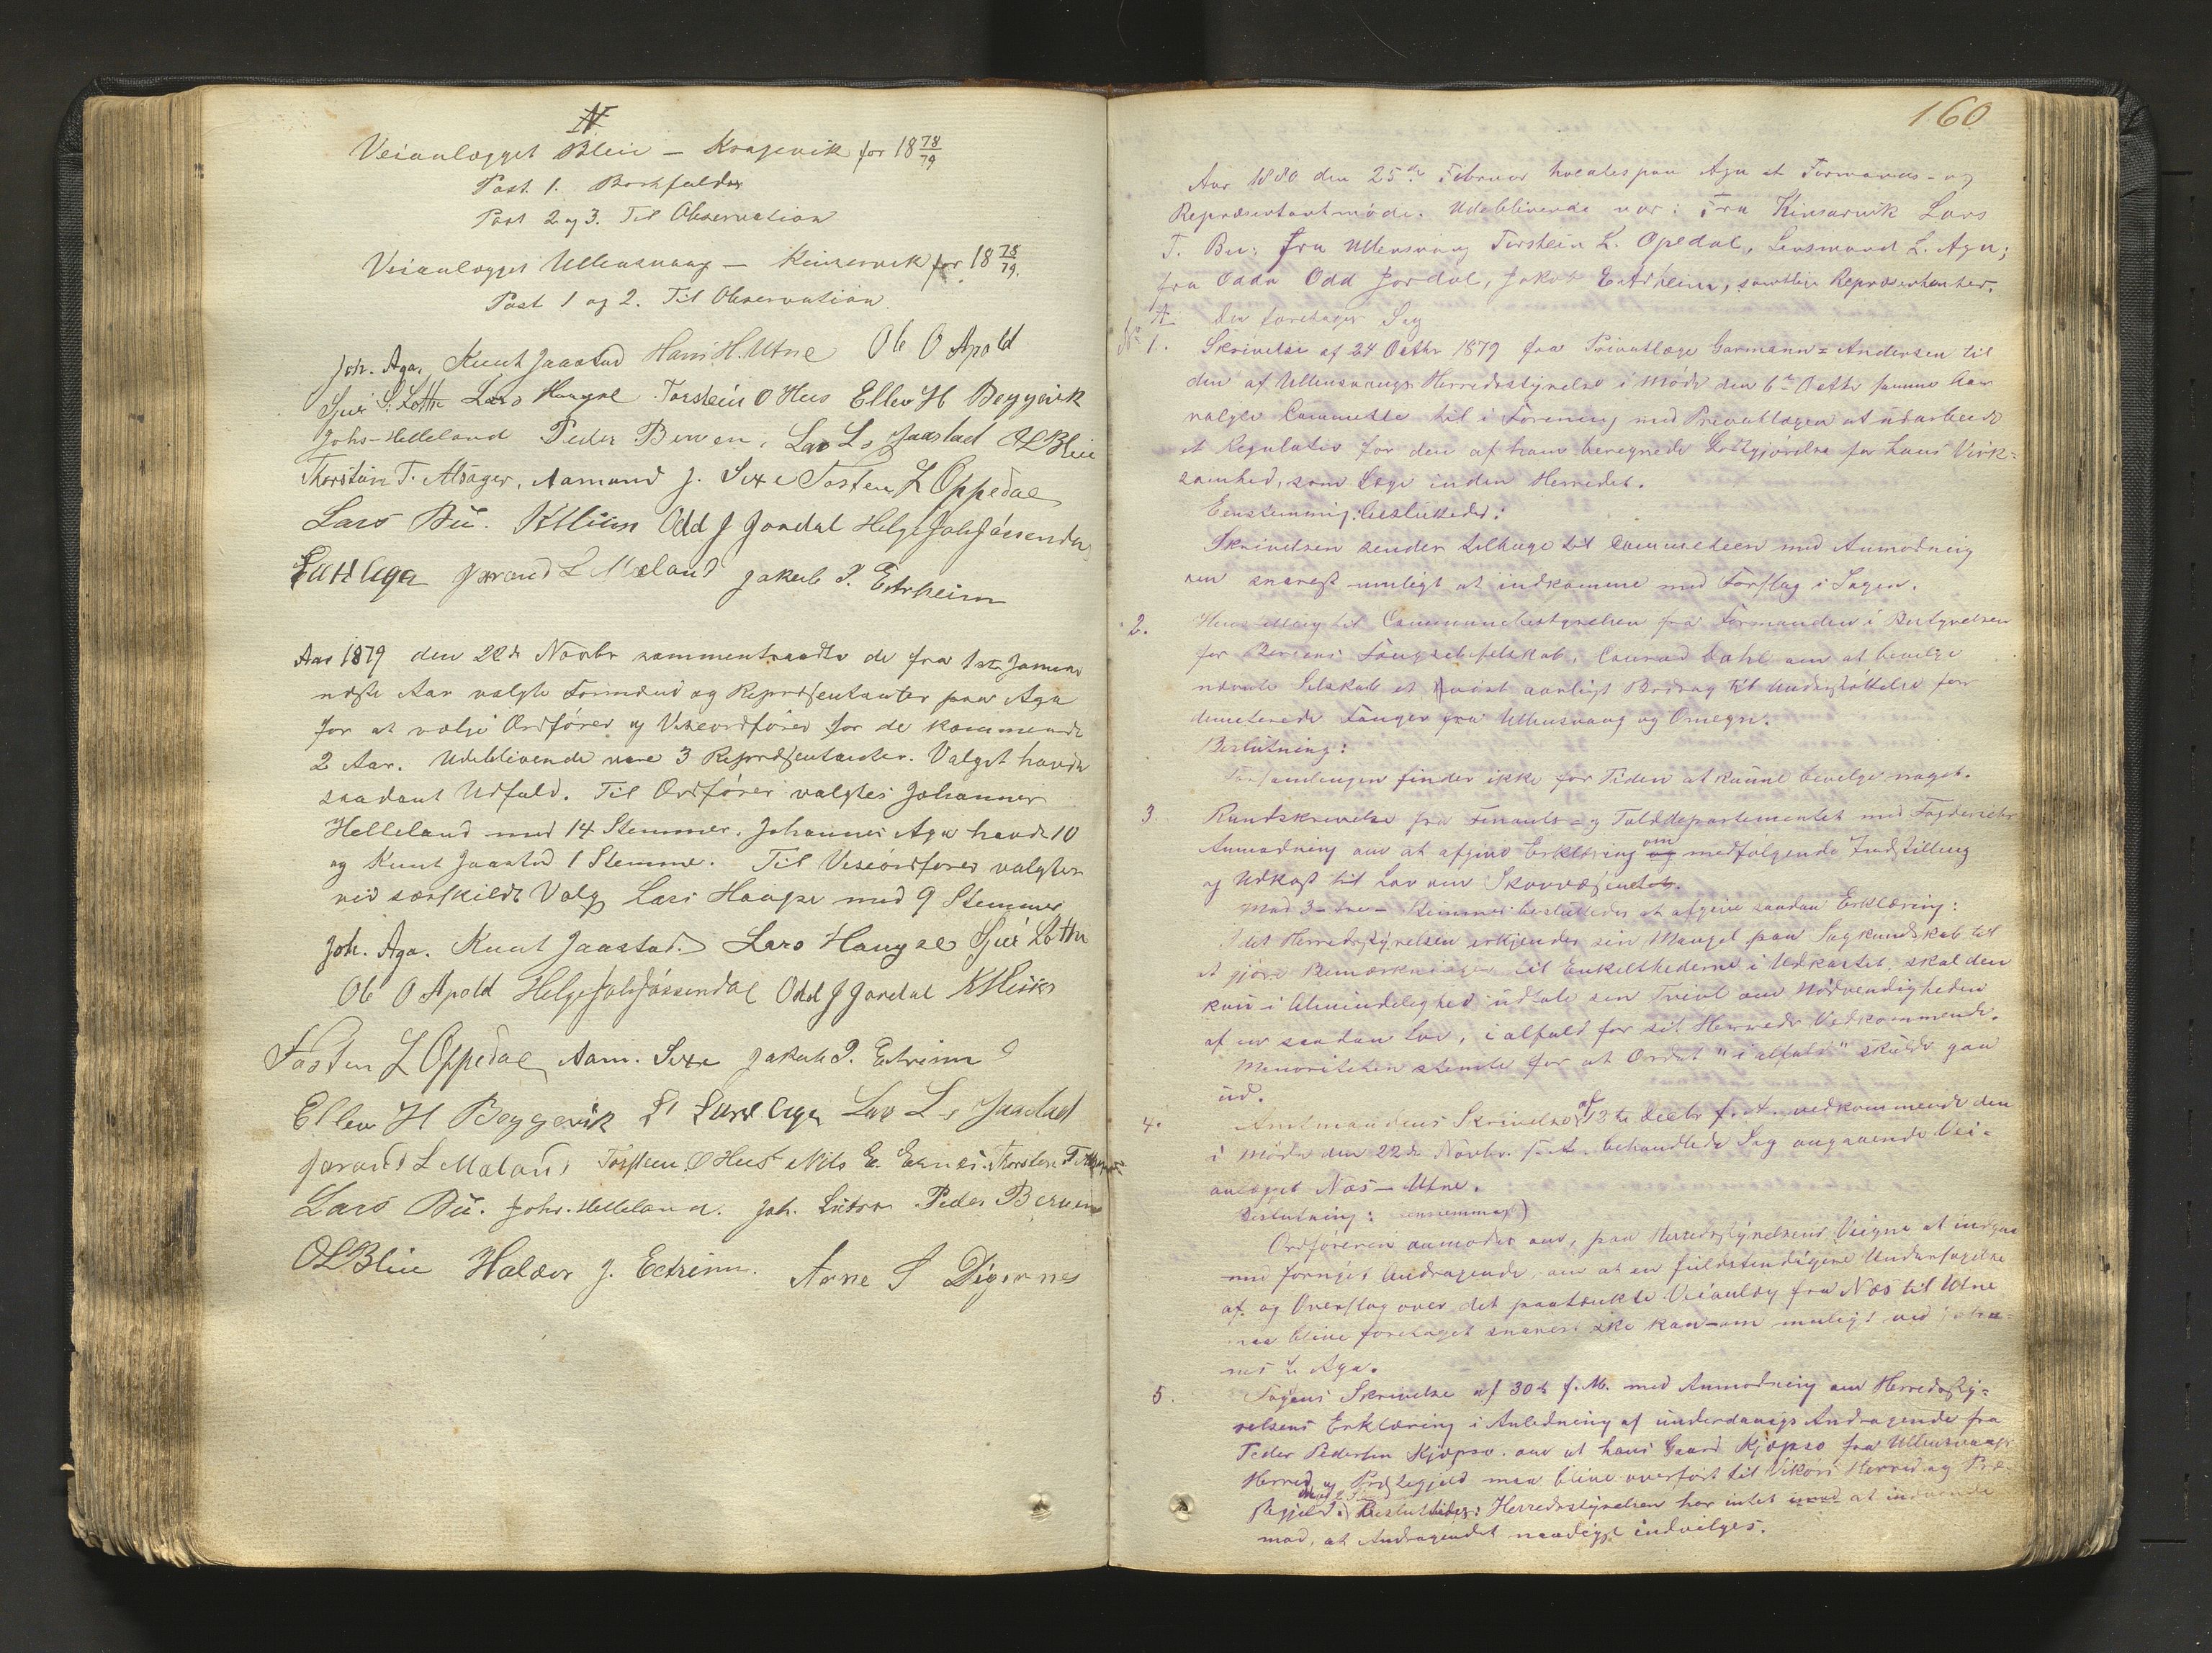 N
Veianlægget Bleie – Kragevik for 18 78/79
Post. 1. Bortfalder
Post 2 og 3. Til Observation
Veianlægget Ullensvang – Kinservik for 18 78/79.
Post 1 og 2. Til Observation
Joh. Aga, Knut Jaastad Hans H. Utne Ole O Apold
Sjur S. Lothe Lars Haugse Torstein O Hus Ellev H Beggevik
Johs. Helleland Peder Berven, Lars L. Jaastad OLBleie
Thorstein T. Alsager, Aamund J. Sexe Tosten L Oppedal
Lars Bu. Odd J Jordal Helge
Aga Jørand L Mæland Jakob P. Eitrheim
Aar 1879 den 22de Novbr sammentraadte de fra 1ste Januar
næste Aar valgte Formænd og Repræsentanter paa Aga
for at vælge Ordfører og Viseordfører for de kommende
2 Aar. Udeblivende vare 3 Repræsentanter. Valget havde
saadant Udfald. Til Ordfører valgtes Johannes
Helleland med 14 Stemmer. Johannes Aga havde 10
og Knut Jaastad 1 Stemme. Til Viseordfører valgtes
ved særskildt Valg Lars Haugse med 9 Stemmer
Joh. Aga. Knut Jaastad. Lars Haugse Sjur Lothe
Ole O Apold Helge Odd J Jordal
Tosten L Oppedal Aam. Sexe Jakob P. Eitreim
Ellev H Beggevik Aga Lars L. Jaastad
Jørand L Mæland Torstein O Hus Nils E. Thorstein T.
Lars Bu. Johs. Helleland. Joh. Peder Berven
OLBleie Haldor J. Eitreim. Arne S Digernes
160
Aar 1880 den 25de Februar holdtes paa Aga et Formands- og
Repræsentantmøde. Udeblivende var: fra Kinsarvik Lars
T. Bu; fra Ullensvang Torstein L. Opedal, Lensmand L. Aga;
fra Odda Odd Jordal, Jakob Eitrheim, samtlige Repræsentanter.
A. Der foretoges Sag
No 1. Skrivelse af 24 Octbr 1879 fra Privatlæge Garmann-Andersen til
den af Ullensvangs Herredsstyrelse i Møde den 6te Octbr samme Aar
valgte Committe til i Forening med Privatlægen at udarbeide
et Regulativ for den af ham beregnede Godtgjørelse for hans Virk=
somhed, som Læge inden Herredet.
Eenstemmig besluttedes:
Skrivelsen sendes tilbage til Committeen med Anmodning
om snarest muligt at indkomme med Forslag i Sagen.
2. Henstilling til Communebestyrelsen fra Formanden i Bestyrelsen
for Bergens Fængselsselskab, Conrad Dahl om at bevilge
nævnte Selskab et vist aarligt Bidrag til Understøttelse for
dimitterede Fanger fra Ullensvang og Omegn.
Beslutning:
Forsamlingen finder ikke for Tiden at kunne bevilge noget.
3. Rundskrivelse fra Finants- og Tolddepartementet med Fogderiets
Anmodning om at afgive Erklæring om medfølgende Indstilling
og Udkast til Lov om Skovvæsenet.
Mod 3 – tre – Stemmer besluttedes at afgive saadan Erklæring:
Idet Herredsstyrelsen erkjender sin Mangel paa Sagkundskab til
at gjøre Bemærkninger til Enkelthederne i Udkastet, skal den
kun i Almindelighed udtale sin Tvivl om Nødvendigheden
af en saadan Lov, i alfald for sit Herreds Vedkommende.
Menoriteten stemte for at Ordet "i alfald" skulde gaa
ud.
4. Amtmandens Skrivelse af 13de Decbr f. A. vedkommende den
i Møde den 22de Novbr. f. A. behandlede Sag angaaende Vei=
anlægget Næs – Utne.
Beslutning: (enstemmigt)
Ordføreren anmodes om, paa Herredsstyrelsens Vegne at indgaa
med fornyet Andragende, om at en fuldstændigere Undersøgelse
af og Overslag over det paatænkte Veianlæg fra Næs til Utne
maa blive foretaget snarest ske kan – om muligt ved Johan=
nes L. Aga.
5. Fogens Skrivelse af 30te f. M. med Anmodning om Herredssty=
relsens Erklæring i Anledning af underdanigt Andragende fra
Peder Pedersen Kjepso om at hans Gaard Kjepso fra Ullensvangs
Herred og Præstegjeld maa blive overført til Vikørs Herred og Præ=
stegjeld. Besluttedes: Herredsstyrelsen har intet imod at indvende
mod, at Andragendet naadigst indvilges.